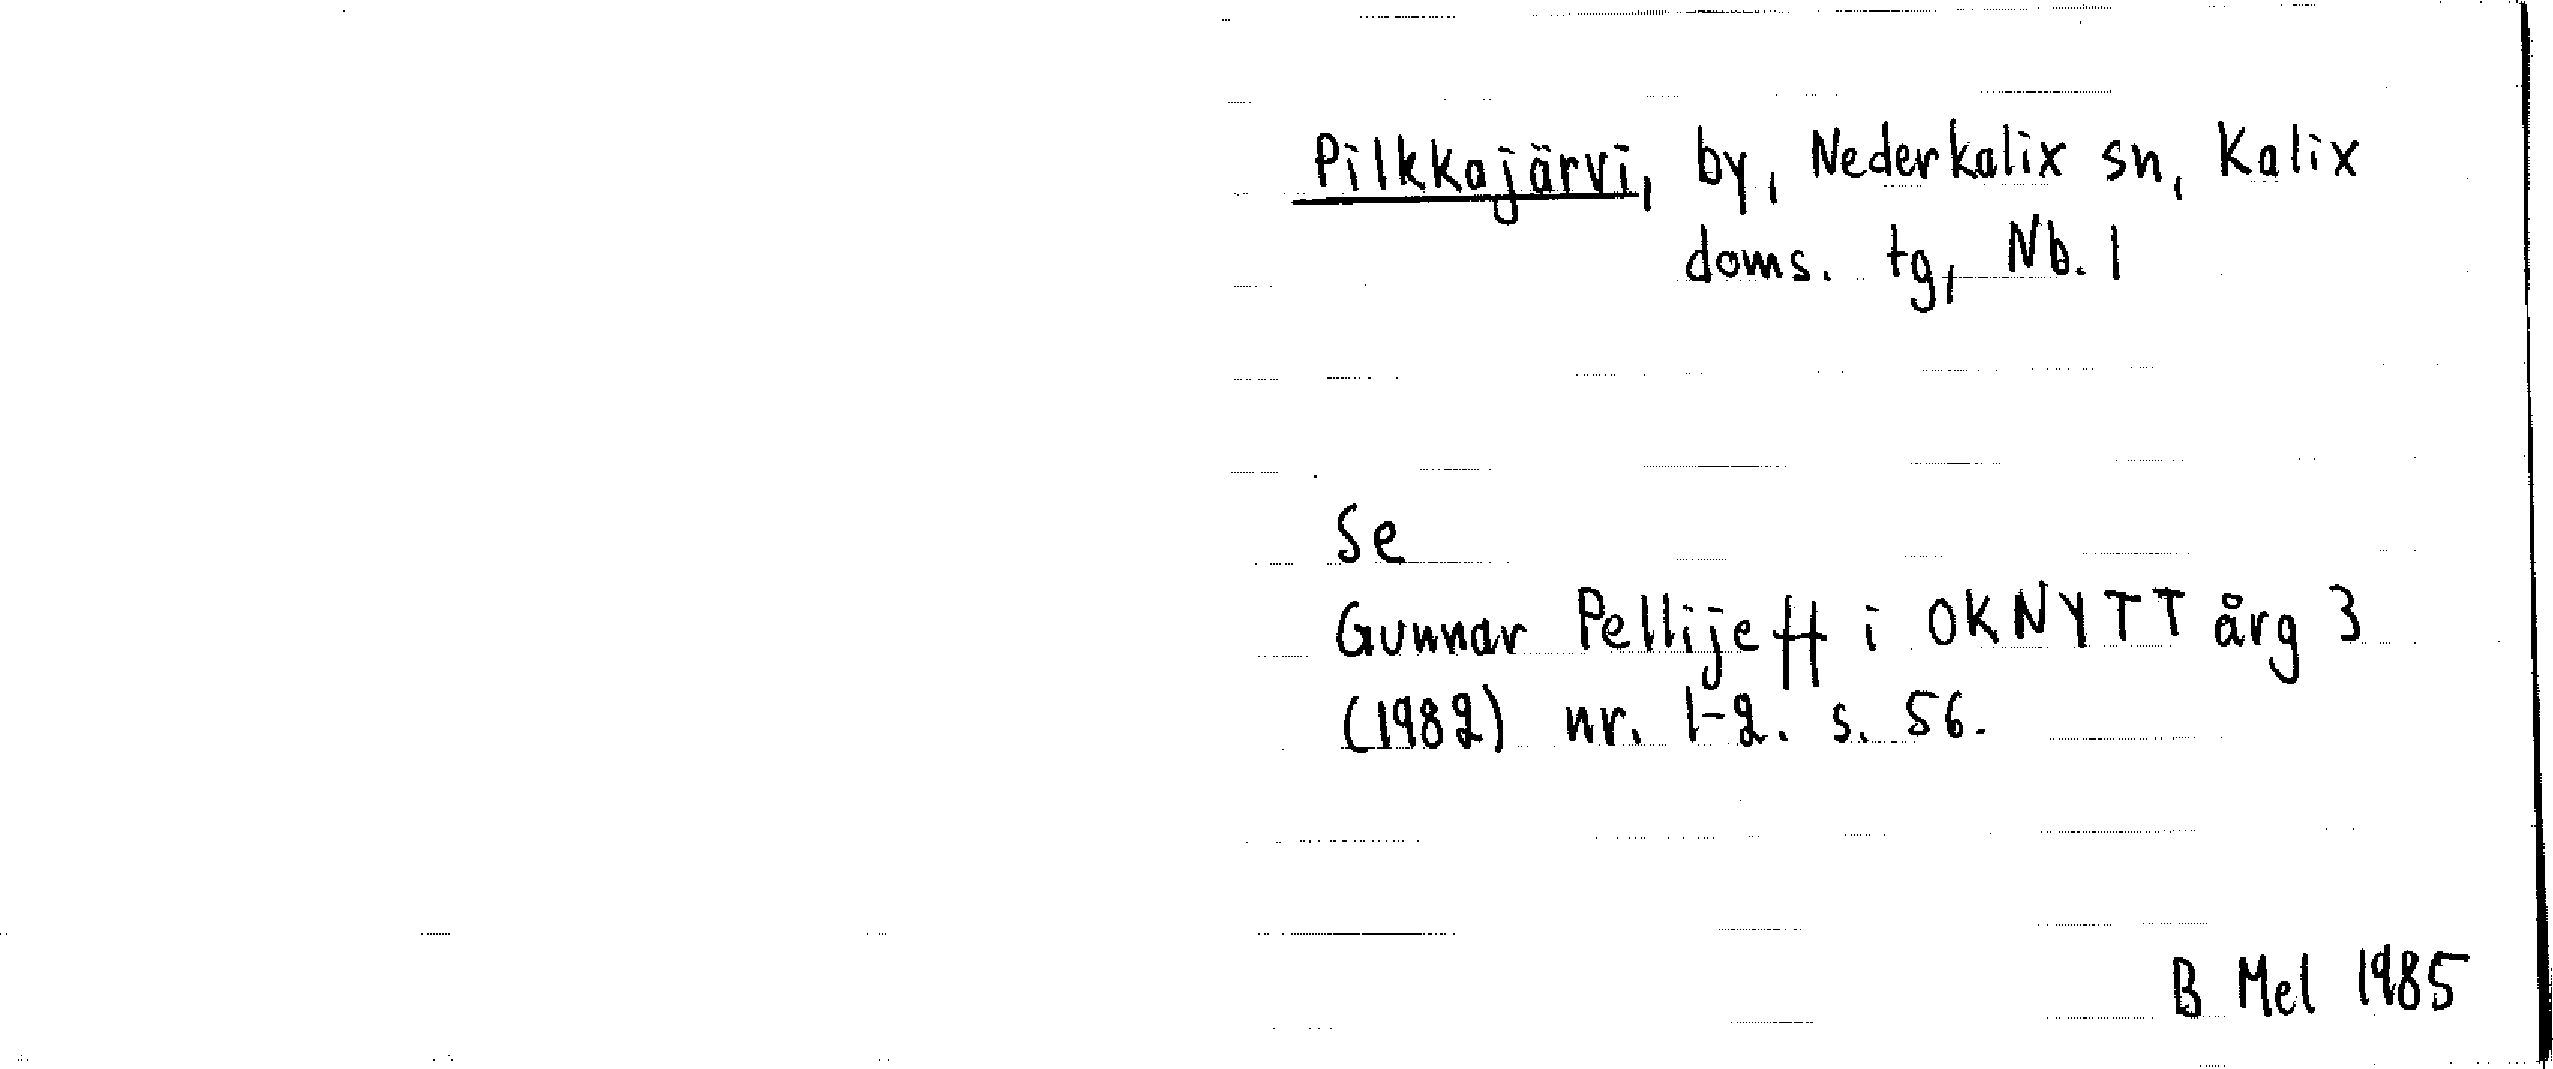 Pilkkajärvi, by, Nederkalix sn, Kalix
doms. tg, Nb. 1
Se
Gunnar Pellijeff i OKNYTT årg 3
(1982) nr. 1-2. s. 56.
B Mel 1985